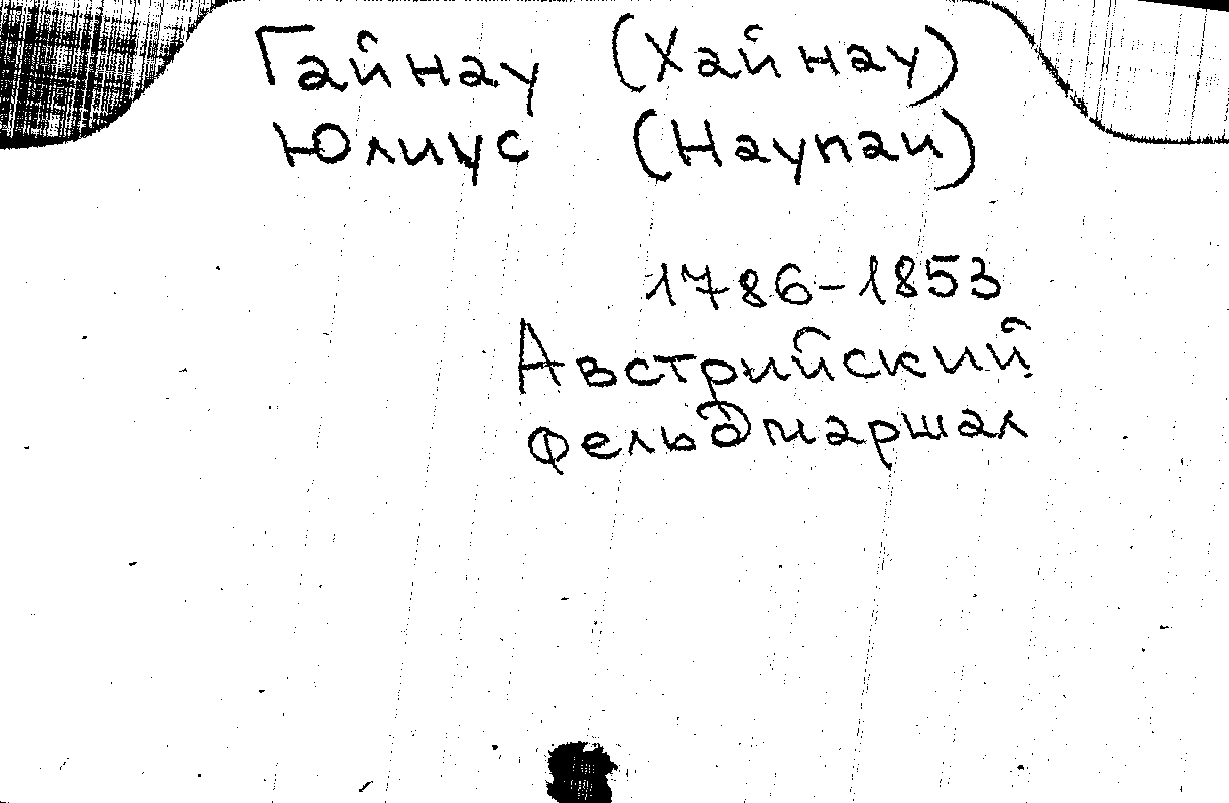 Гайнау (Хайнау)
Юлиус (Haynau)
1786-1853
Австрийский
фельдмаршал